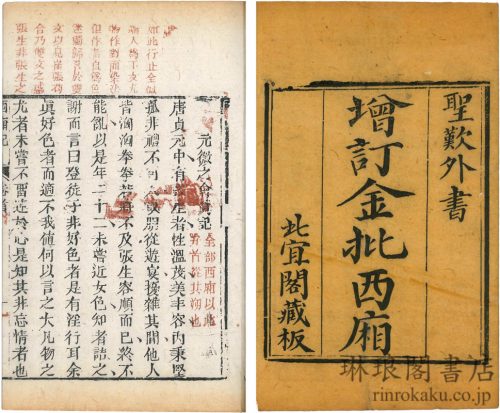 聖歎外書
增訂金批西廂
此宜閣藏板
如此行止全似
元微之會眞記
全部西廂以此
首從其朔也
唐貞元中有張生者性溫茂美丰容內秉堅
孤非禮不可入或朋從遊宴擾雜其間他人
皆洶洶拳拳若將不及張生容順而已終不
能亂以是年二十二未嘗近女色知者詰之
謝而言曰登徒子非好色者是有淫行耳余
眞好色者而適不我値何以言之大凡物之
尤者未嘗不留連於心是知其非忘情者也
西廂記 卷首
琳琅閣書店
rinrokaku.co.jp